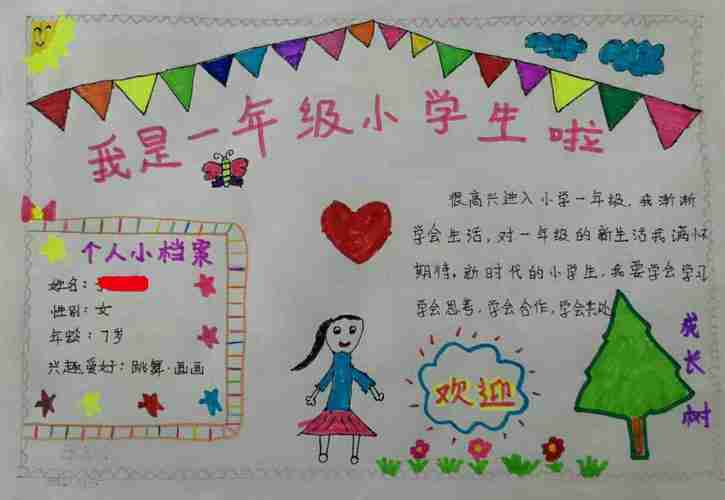 我是一年级小学生啦
个人小档案
姓名：
性别：女
年龄：7岁
兴趣爱好：跳舞.画画
很高兴进入小学一年级，我渐渐
学会生活，对一年级的新生活我满怀
期待，新时代的小学生，我要学会学习
学会思考，学会合作，学会共处
欢迎
成长树